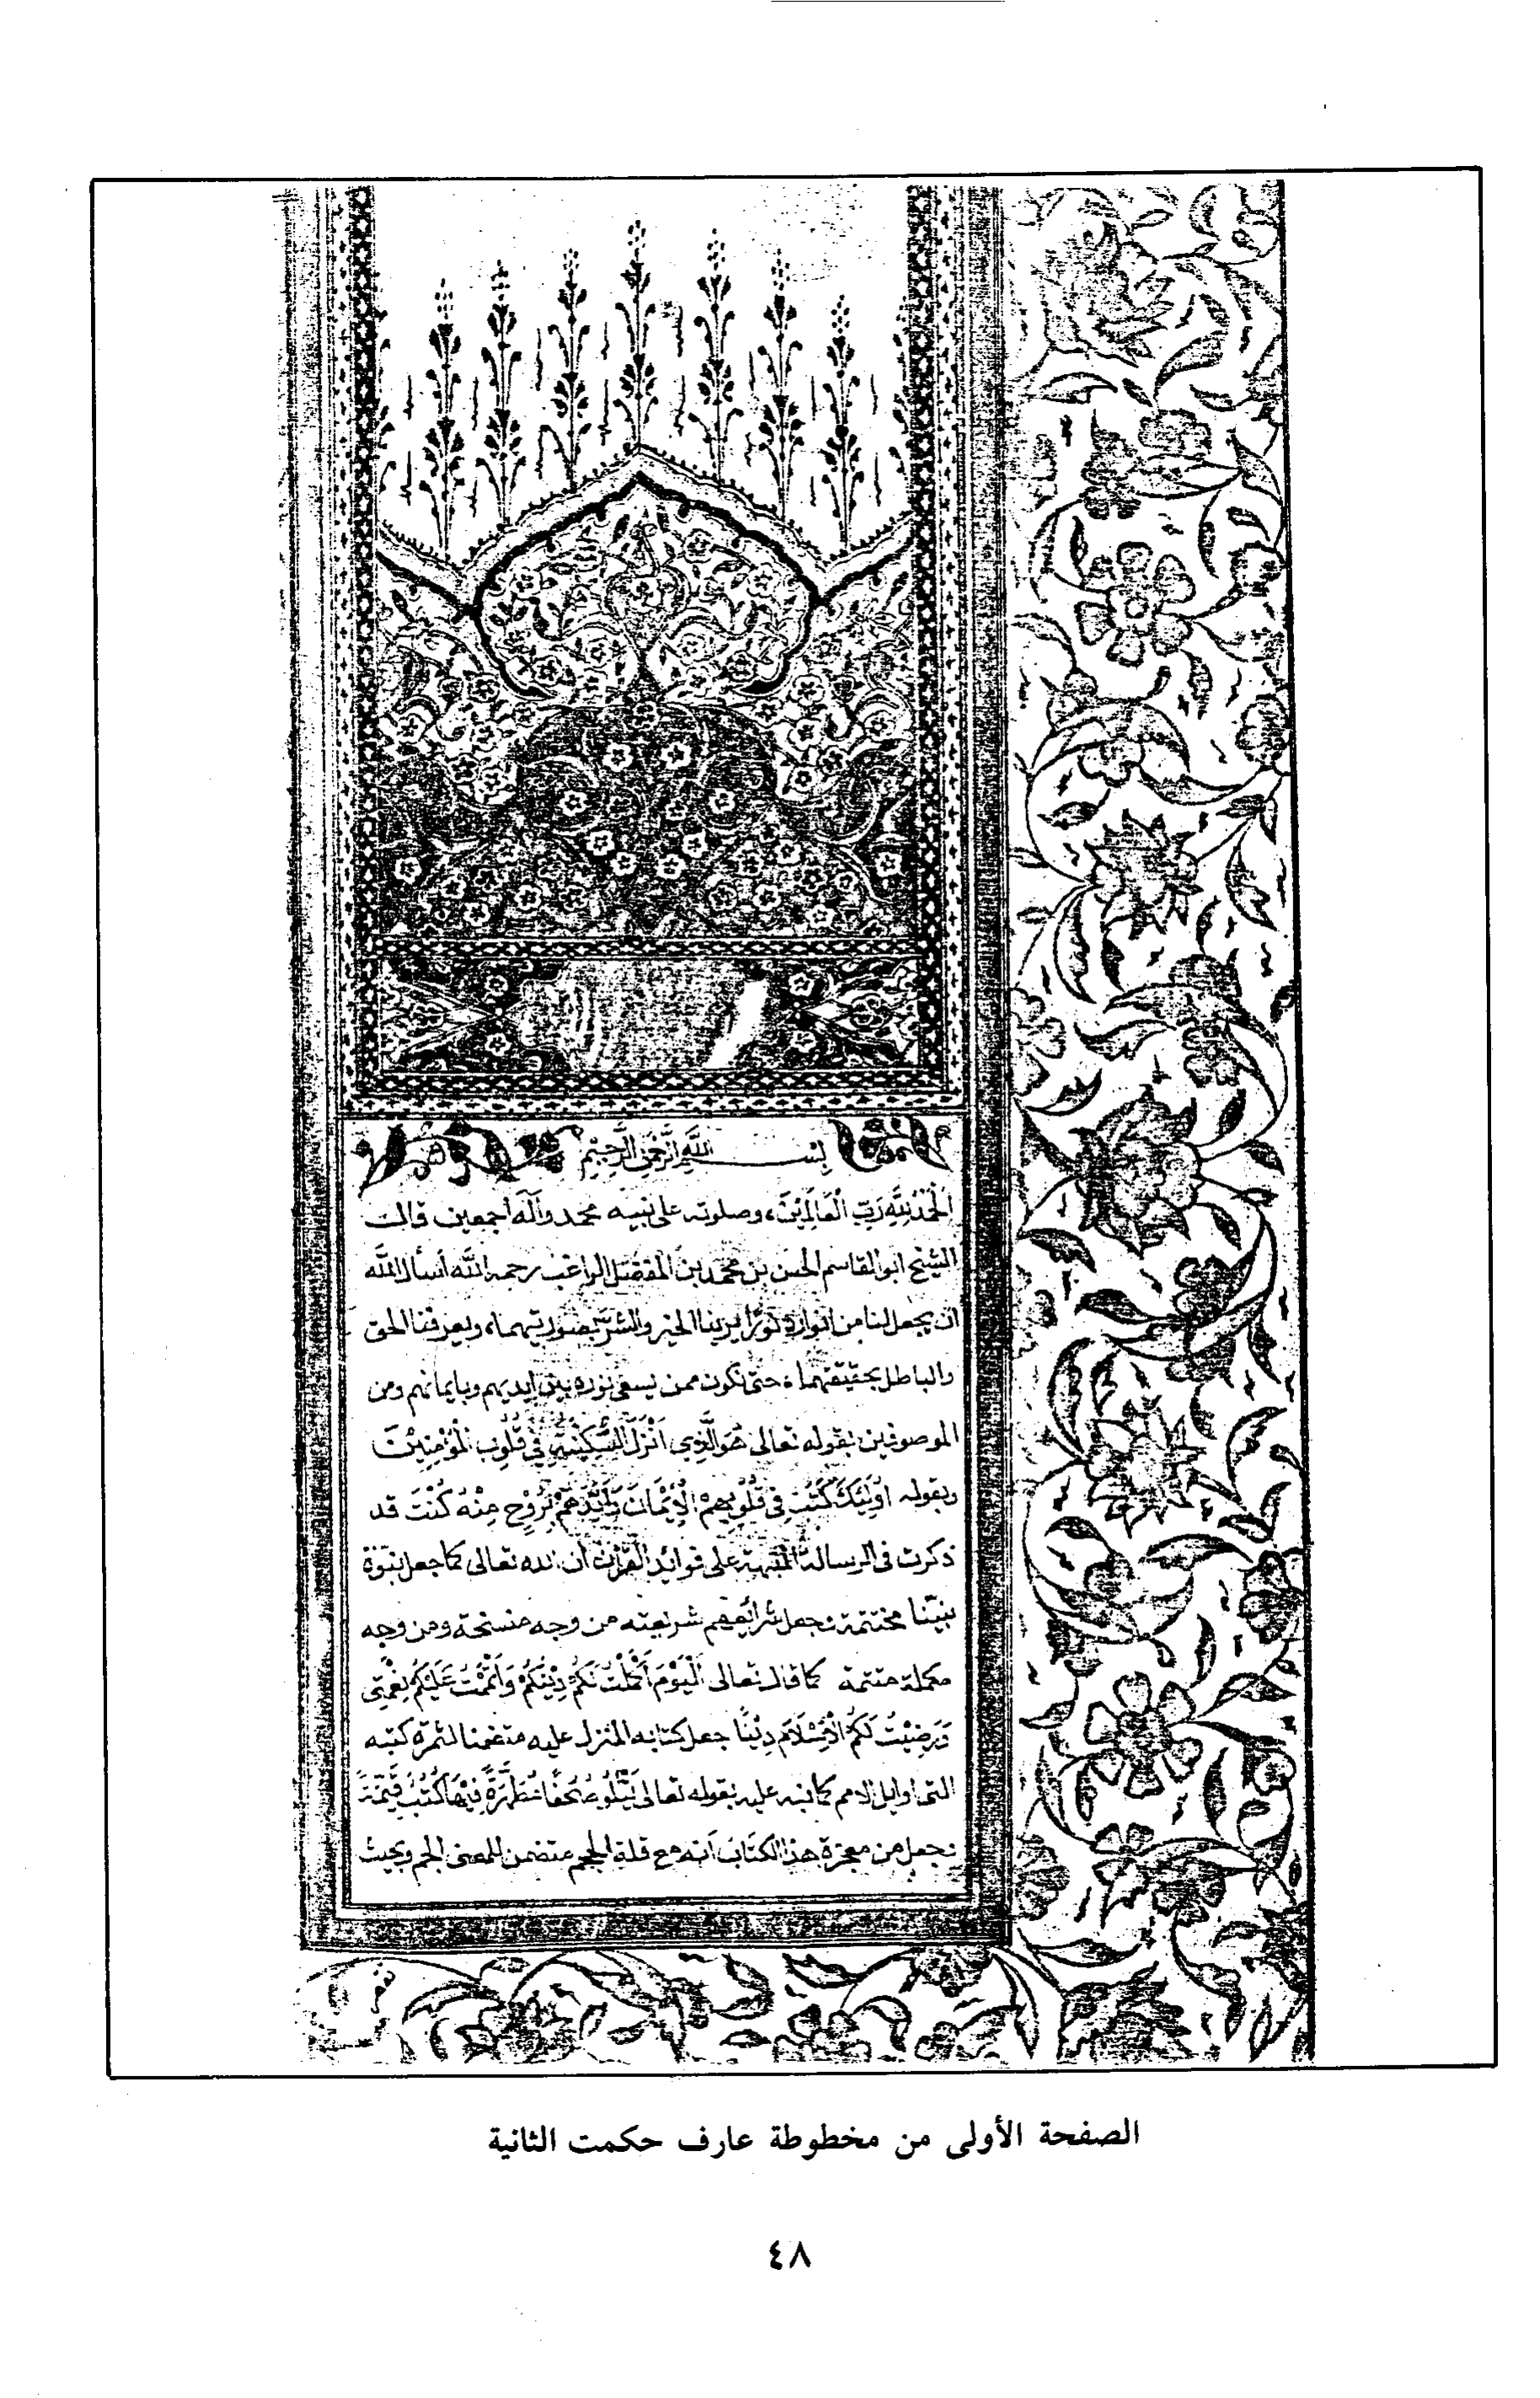 بسم الله الرحمن الرحيم
الحمد لله رب العالمين، وصلوته على نبيه محمد وآله أجمعين قالت
الشيخ ابو القاسم الحسن بن محمد بن المفضل الراغب رحمه الله أسأل الله
ان يجعل لنا من انواره نورًا يرينا الخير والشر بصورتهما، ويعرفنا الحق
والباطل بحقيقتهما، حتى نكون ممن يسعى نوره بين ايديهم وبايمانهم ومن
الموصوفين بقوله تعالى هُوَ الَّذِي أَنْزَلَ السَّكِينَةَ فِي قُلُوبِ الْمُؤْمِنِينَ
وبقوله أُولَئِكَ كَتَبَ فِي قُلُوبِهِمُ الْإِيْمَانَ وَأَيَّدَهُمْ بِرُوْحٍ مِنْهُ كُنْتَ قد
ذكرت فى الرسالة المنبهة على فوائد القرآن أن الله تعالى كما جعل نبوّة
نبيّنا مختتمة وجعل شرائعهم شريعته من وجه منسخة ومن وجه
مكملة متتمة كما قال تعالى الْيَوْمَ أَكْمَلْتُ لَكُمْ دِيْنَكُمْ وَأَتْمَمْتُ عَلَيْكُمْ نِعْمَتِي
وَرَضِيْتُ لَكُمُ الْإِسْلَامَ دِيْنًا جعل كتابه المنزل عليه متضمنا لثمرة كتبه
التى اوايل الامم كما نبه عليه بقوله تعالى يَتْلُو صُحُفًا مُطَهَّرَةً فِيْهَا كُتُبٌ قَيِّمَةٌ
وجعل من معجزة هذا الكتاب أنه مع قلة الحجم متضمن للمعنى الجم وبحيث
تقصر
الصفحة الأولى من مخطوطة عارف حكمت الثانية
٤٨